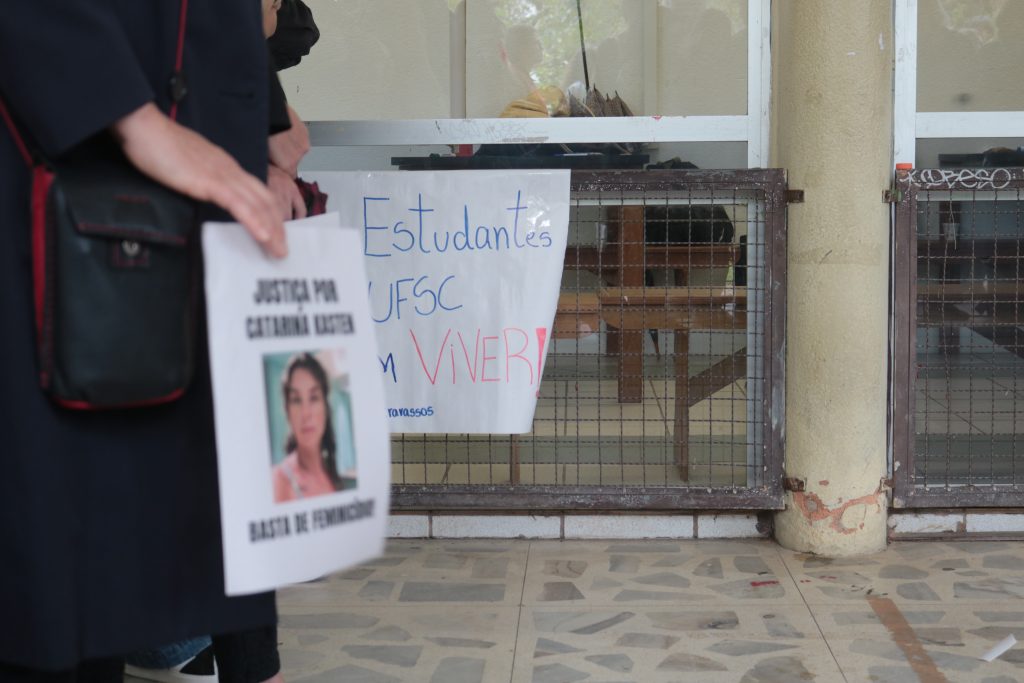 JUSTIÇA POR
CATARINA KASTEN
BASTA DE FEMINICÍDIO!
Estudantes
UFSC
VIVER!